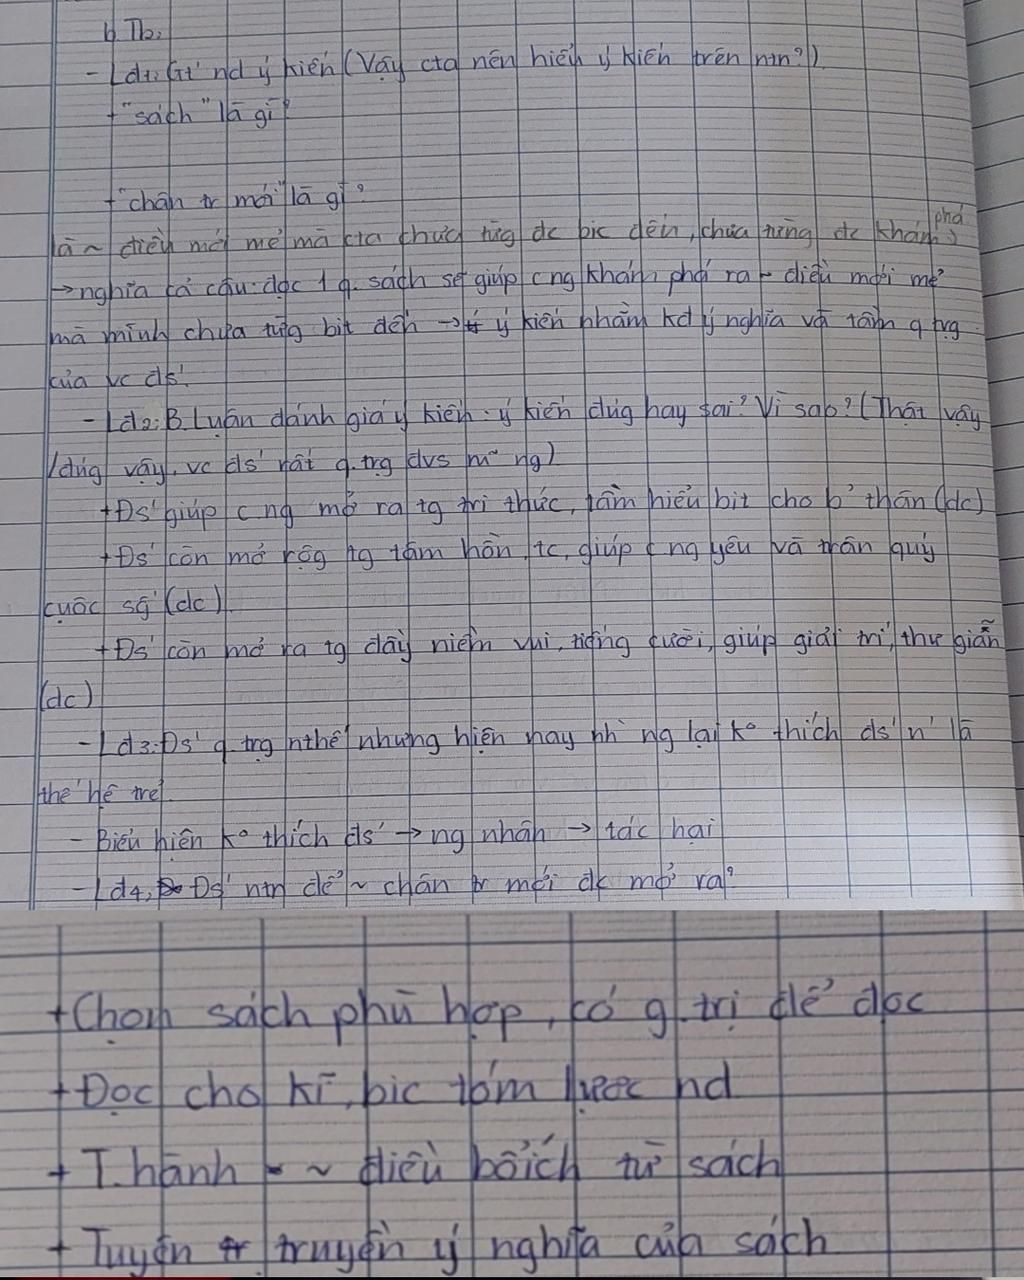 b, Tb:
- Ld1: Gt' nd ý kiến (Vậy cta nên hiểu ý kiến trên ntn?)
+ "sách" là gì?
+ "chân tr mới" là gì?
là ~ điều mới mẻ mà cta chưa từg dc bic đến, chưa từng dc khám phá
→ nghĩa cả câu: đọc 1 q. sách sẽ giúp c ng khám phá ra ~ điều mới mẻ
mà mình chưa từg bit đến → ý kiến nhằm kđ ý nghĩa và tầm q trg
của vc đs'.
- Ld2: B. Luận đánh giá ý kiến: ý kiến đúg hay sai? Vì sao? (Thật vậy
/đúg vậy, vc đs' rất q. trg đvs m~ ng)
+ Đs' giúp c ng mở ra tg tri thức, tầm hiểu bit cho b' thân (dc)
+ Đs' còn mở rộg tg tâm hồn, tc, giúp c ng yêu và trân quý
cuộc sg' (dc)
+ Đs' còn mở ra tg đầy niềm vui, tiếng cười, giúp giải trí, thư giãn
(dc)
- Ld3: Đs' q. trg nthế nhưng hiện nay nh` ng lại k° thích đs' n' là
thế hệ trẻ
- Biểu hiện k° thích đs' → ng nhân → tác hại
- Ld4: Đs' ntn để ~ chân tr mới dk mở ra?
+ Chọn sách phù hợp, có g. trị để đọc
+ Đọc cho kĩ, bic tóm lược nd
+ T. hành ~ điều bổ ích từ sách
+ Tuyên truyền ý nghĩa của sách